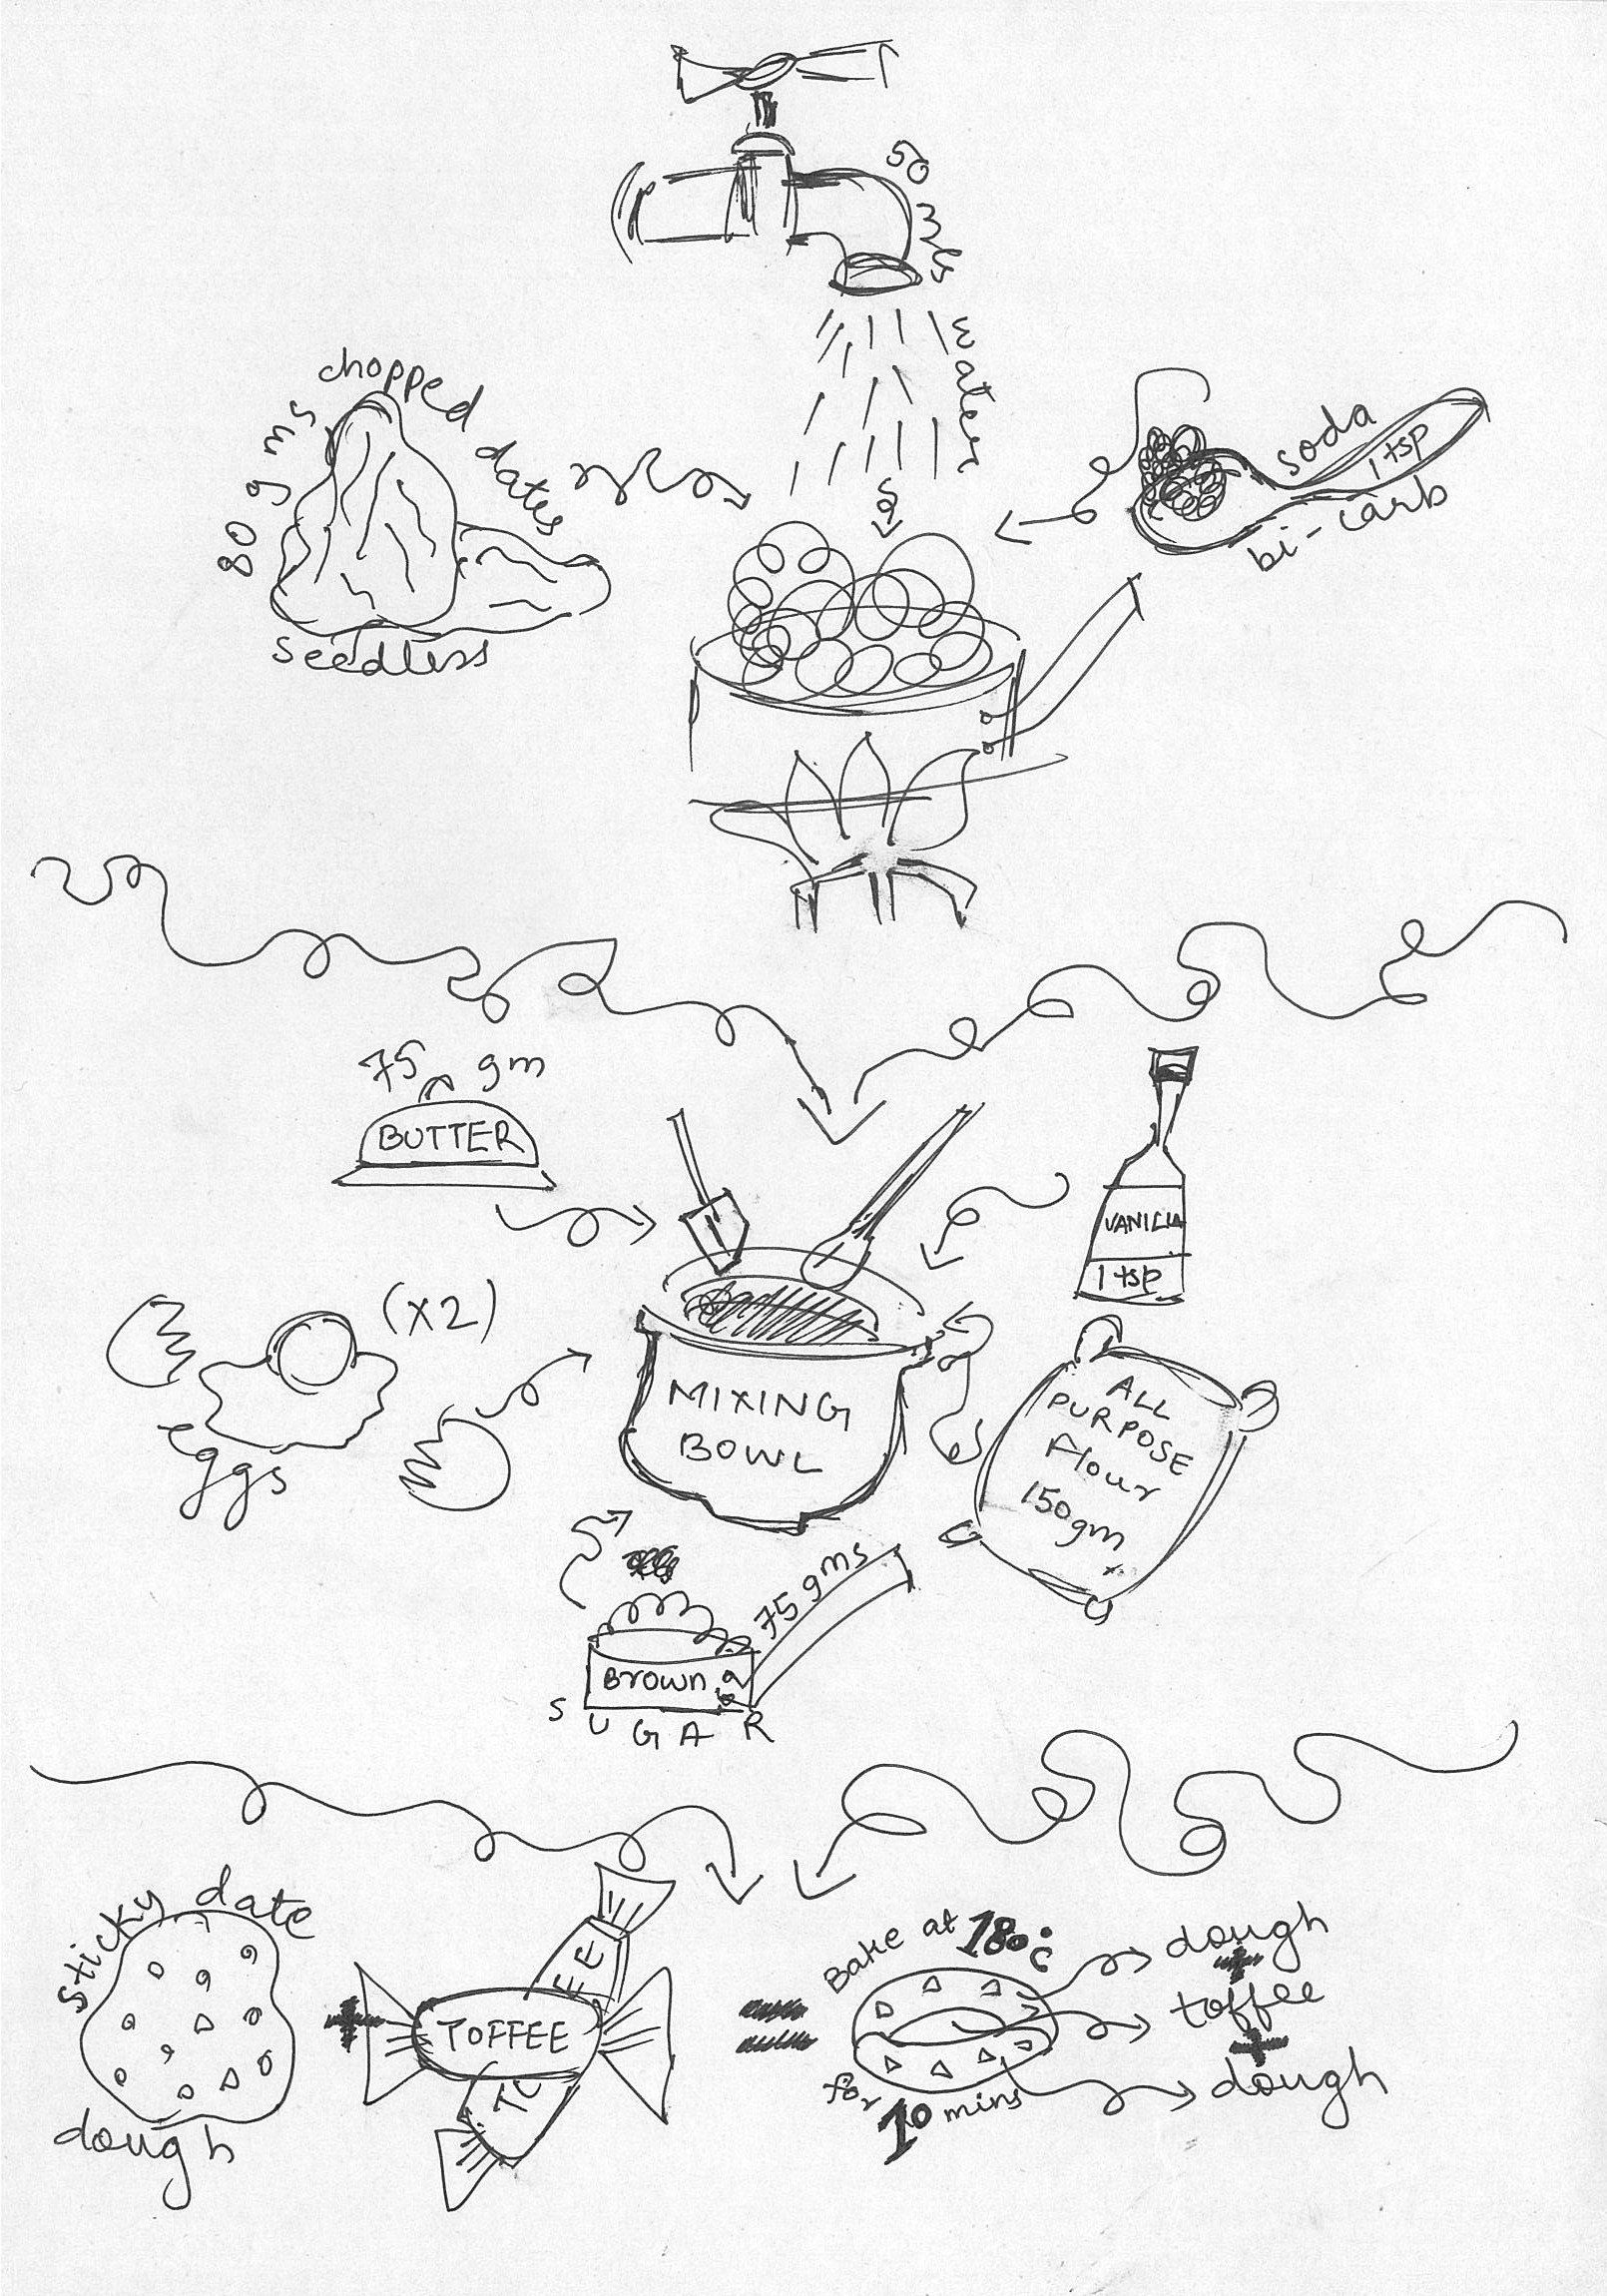 50 mls
water
80 gms chopped dates
seedless
soda
1 tsp
bi-carb
75 gm
BUTTER
VANILLA
1 tsp
(X2)
eggs
MIXING
BOWL
ALL
PURPOSE
Flour
150gm
75 gms
Brown
SUGAR
sticky date
dough
+
TOFFEE
FEE
=
Bake at 180°C
for
10 mins
dough
+
toffee
+
dough